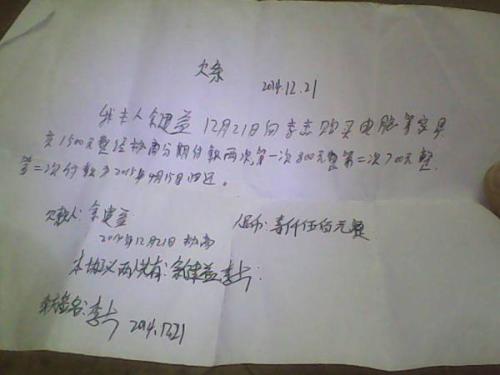 欠条 2014.12.21
我本人余建益12月21日向李志购买电脑等家具
共1500元整经协商分期付款两次第一次800元整第二次700元整.
第二次付款为2015年4月15日归还。
欠款人:余建益 人民币:壹仟伍佰元整
2014年12月21日
本协议两人共有:余建益,李
签名:李 2014.12.21